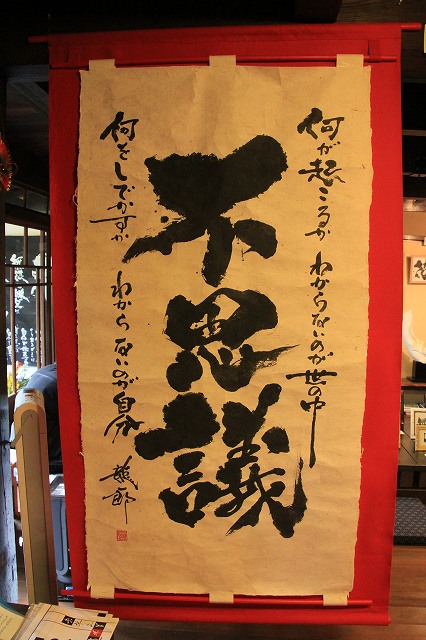 何が起こるかわからないのが世の中
不思議
何をしでかすかわからないのが自分